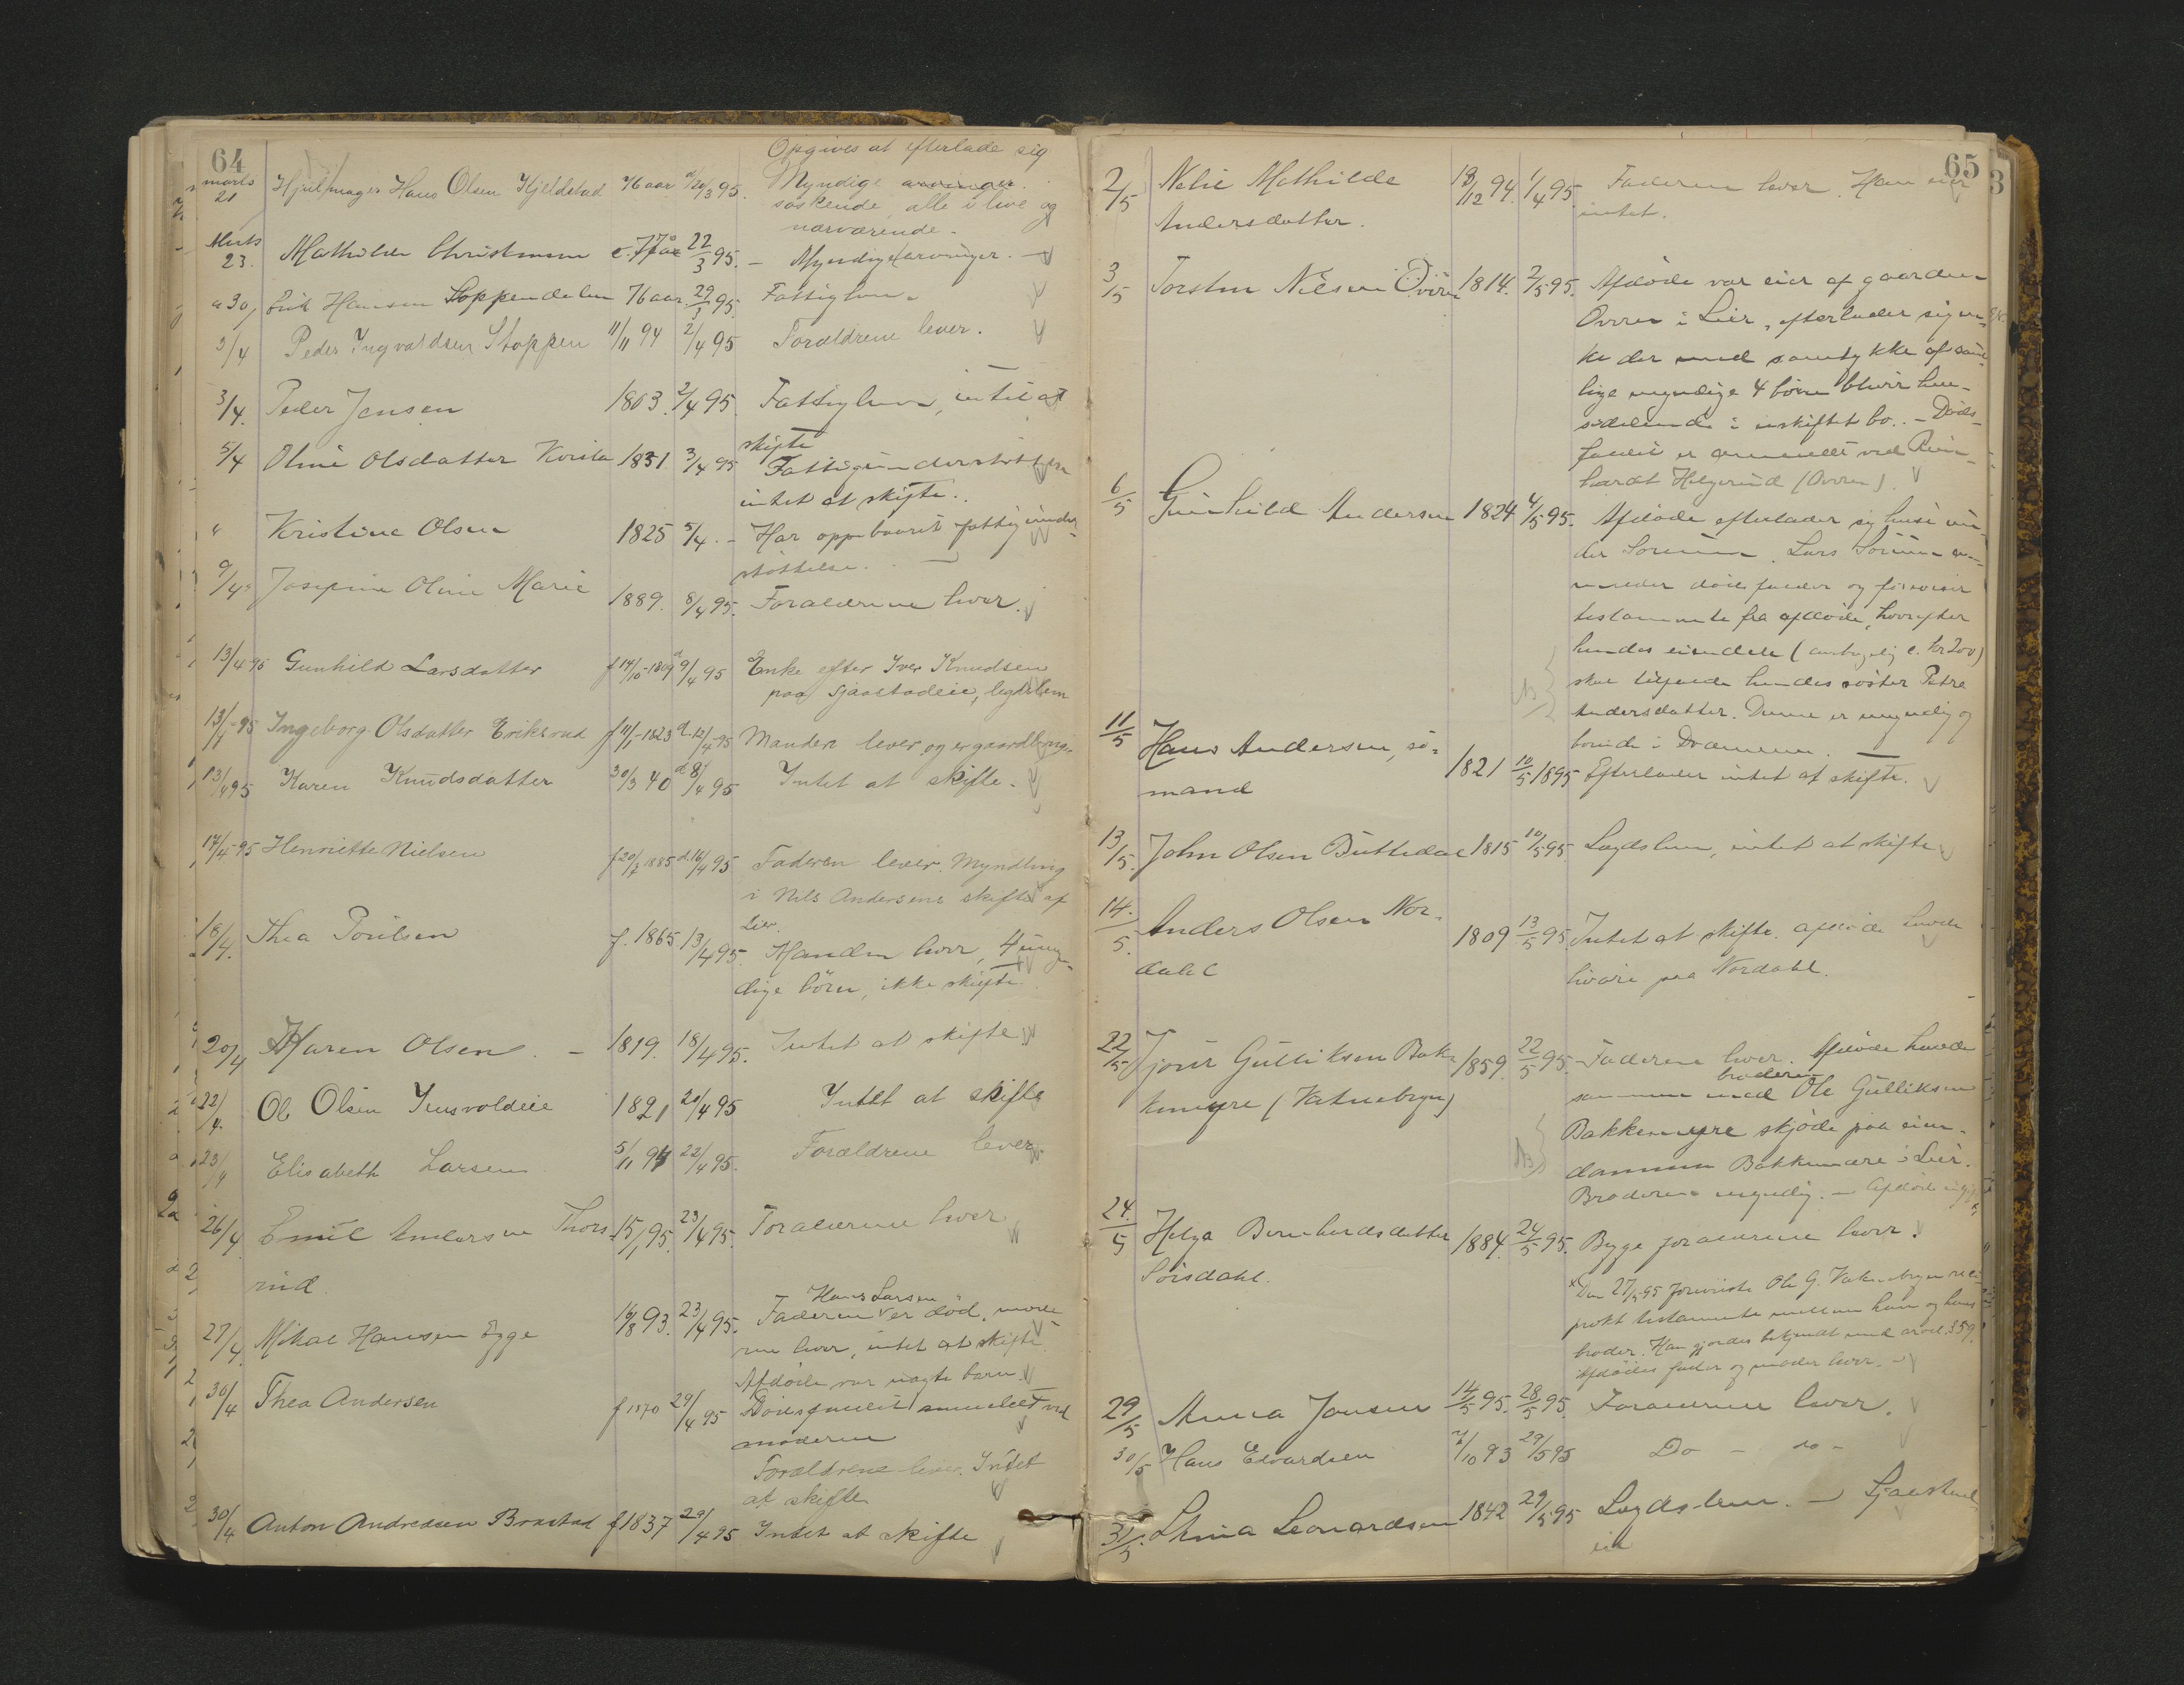 64
Opgives at efterlade sig
marts 21 Hjulmager Hans Olsen Kjeldstad 76 aar d 20/3 95. Myndige arvinger.
søskende, alle i live og
nærværende.
Marts 23. Mathilde Christensen 22/3 95. - Myndige arvinger. -
" 30/ Erik Hansen Stoppendalen 76 aar. 29/3 95 Fattiglem.
3/4 Peder Ingvaldsen Stoppen 11/11 94 2/4 95 Forældrene lever.
3/4. Peder Jensen 1803. 2/4 95. Fattiglem, intet at
skifte
5/4 Oline Olsdatter 1831 3/4 95 Fattigunderstøttet
intet at skifte.
" Kristine Olsen 1825 5/4. - Har oppebaaret fattigunder-
støttelse. -
9/4 Josefine Oline Marie 1889. 8/4 95. Forældrene lever.
13/4 95 Gunhild Larsdatter f 14/10-1809 d 9/4 95 Enke efter Iver Knudsen
paa Sjaastadeie, lægdslem
13/4-95 Ingeborg Olsdatter Eriksrud f 11/1-1823 d. 12/4-95 Manden lever og er gaardbrug.
13/4 95 Karen Knudsdatter 30/3 40 d 8/4 95 Intet at skifte.
17/4-95 Henriette Nielsen f 20/7 1885 d. 16/4 95 Faderen lever. Myndling
i Nils Andersens skifte af
Lier.
18/4. Thea Poulsen f. 1865 13/4 95. Manden lever, 4 umyn-
dige børn, ikke skifte
20/4 Karen Olsen. - 1819. 18/4 95. Intet at skifte
22/4. Ole Olsen Jensvoldeie 1821 20/4 95 Intet at skifte
23/4 Elisabeth Larsen 5/11 94 22/4 95. Forældrene lever.
26/4 Emil Andersen Thors- 15/1 95. 23/4 95. Forældrene lever
rud.
Hans Larsen
27/4. Mikal Hansen Egge 16/8 93. 23/4 95. Faderen er død, mode-
ren lever, intet at skifte
Afdøde var uægte barn.
30/4 Thea Andersen f 1870 29/4 95 Dødsfaldet anmeldt ved
moderen
Forældrene lever. Intet
at skifte
30/4 Anton Andreasen Brastad f 1837 29/4 95 Intet at skifte
65
2/5 Nelie Mathilde 18/12 94. 1/4 95. Faderen lever. Han eier
Andersdatter. intet.
3/5 Torsten Nilsen Ovren 1814. 2/5 95. Afdøde var eier af gaarden
Ovren i Lier, efterlader sig en-
ke der med samtykke af sam-
lige myndige 4 børn blivir hen-
siddende i uskiftet bo. - Døds-
faldet er anmeldt ved Rein-
hardt Helgerud (Ovren).
6/5 Gunhild Andersen 1824 4/5 95. Afdøde efterlader sig huse un-
der Sørum. Lars Sørum an-
melder dødsfaldet og foreviser
testamente fra afdøde, hvorefter
hendes eiendele (antagelig c. kr 200)
skal tilfalde hendes søster Petra
Andersdatter. Denne er myndig og
boende i Drammen. -
11/5 Hans Andersen, sø- 1821 10/5 1895 Efterlader intet at skifte.
mand
13/5. John Olsen Buttedal 1815 10/5 95 Lægdslem, intet at skifte
14/5. Anders Olsen Nor- 1809 13/5 95. Intet at skifte. afdøde havde
dahl livøre paa Nordahl.
22/5 Gulliksen Bak- 1859. 22/5 95. - Faderen lever. Afdøde havde
broderen
kemyre (Vatnebryn) sammen med Ole Gulliksen
Bakkemyre skjøde paa eien-
dommen Bakkemyre i Lier.
Broderen myndig. - Afdøde ugift x
24/5 Helga Bernhardsdatter 1884. 24/5 95. Begge forældrene lever.
Sørsdahl.
x Den 27/5 95 foreviste Ole G. Vatnebryn reci-
prokt testamente mellem ham og hans
broder. Han gjordes bekjendt med arvel. § 59.
Afdødes fader og moder lever. -
29/5 Anna Jonsen 14/5 95. 28/5 95. Forældrene lever.
30/5 Hans Edvardsen 7/10 93 29/5 95 Do - do -
31/5. Leonardsen 1842 29/5 95 Lægdslem. - Sjaastad-
eie